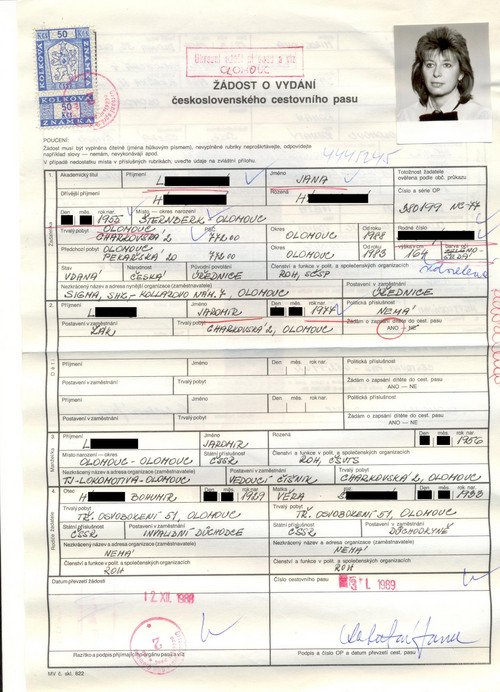 50 KČS 50
KOLKOVÁ ZNÁMKA
50 KČS
ZNÁMKA
OLOMOUC
ŽÁDOST O VYDÁNÍ
československého cestovního pasu
POUČENÍ:
Žádost musí být vyplněna čitelně (jména hůlkovým písmem), nevyplněné rubriky neproškrtávejte, odpovídejte
například slovy — nemám, nevykonávám apod.
V případě nedostatku místa v příslušných rubrikách, uveďte údaje na zvláštní příloze.
4445245
1. Akademický titul Příjmení L Jméno JANA Totožnost žadatele
ověřena podle obč. průkazu
Dřívější příjmení H Rozená H Číslo a série OP
380199 NC-77
Den měs. rok nar. 1955 Místo — okres narození ŠTERNBERK OLOMOUC Rodné číslo
Trvalý pobyt OLOMOUC CHARKOVSKÁ 2 PSČ 772 00 Okres OLOMOUC Od roku 1988 Výška cm 164 Barva očí ZELENO-ŠEDÁ
Předchozí pobyt OLOMOUC PEKAŘSKÁ 20 772 00 Okres OLOMOUC Od roku 1983
Stav VDANÁ Národnost ČESKÁ Původní povolání ÚŘEDNICE Členství a funkce v polit. a společenských organizacích ROH, SČSP
Nezkrácený název a adresa nynější organizace (zaměstnavatele) Postavení v zaměstnání
SIGMA, SHS-KOLLÁROVO NÁM. 7, OLOMOUC ÚŘEDNICE
2. Příjmení L Jméno JAROMÍR Den měs. rok nar. 1977 Politická příslušnost NEMÁ
Postavení v zaměstnání ŽÁK Trvalý pobyt CHARKOVSKÁ 2, OLOMOUC Žádám o zapsání dítěte do cest. pasu ANO — NE
Děti
Příjmení Jméno Den měs. rok nar. Politická příslušnost
Postavení v zaměstnání Trvalý pobyt Žádám o zapsání dítěte do cest. pasu
ANO — NE
Příjmení Jméno Den měs. rok nar. Politická příslušnost
Postavení v zaměstnání Trvalý pobyt Žádám o zapsání dítěte do cest. pasu
ANO — NE
3. Příjmení L Jméno JAROMÍR Rozená Den měs. rok nar. 1956
Místo narození — okres OLOMOUC - OLOMOUC Státní příslušnost ČSSR Členství a funkce v polit. a společenských organizacích ROH, ČSVTS
Nezkrácený název a adresa organizace (zaměstnavatele) Postavení v zaměstnání Trvalý pobyt
TJ-LOKOMOTIVA-OLOMOUC VEDOUCÍ ČÍŠNÍK CHARKOVSKÁ 2, OLOMOUC
4. Otec H BOHUMÍR Den měs. rok nar. 1929 Matka VĚRA Š Den měs. rok nar. 1933
Trvalý pobyt TŘ. OSVOBOZENÍ 51, OLOMOUC Trvalý pobyt TŘ. OSVOBOZENÍ 51, OLOMOUC
Státní příslušnost ČSSR Postavení v zaměstnání INVALIDNÍ DŮCHODCE Státní příslušnost ČSSR Postavení v zaměstnání DŮCHODKYNĚ
Nezkrácený název a adresa organizace (zaměstnavatele) Nezkrácený název a adresa organizace (zaměstnavatele)
NEMÁ NEMÁ
Členství a funkce v polit. a společenských organizacích Členství a funkce v polit. a společenských organizacích
ROH ROH
Datum převzetí žádosti Číslo cestovního pasu
12 XII. 1988 3 1. 1989
2
Razítko a podpis přijímajícího orgánu pasů a víz Podpis a číslo OP a datum převzetí cest. pasu
MV č. skl. 622